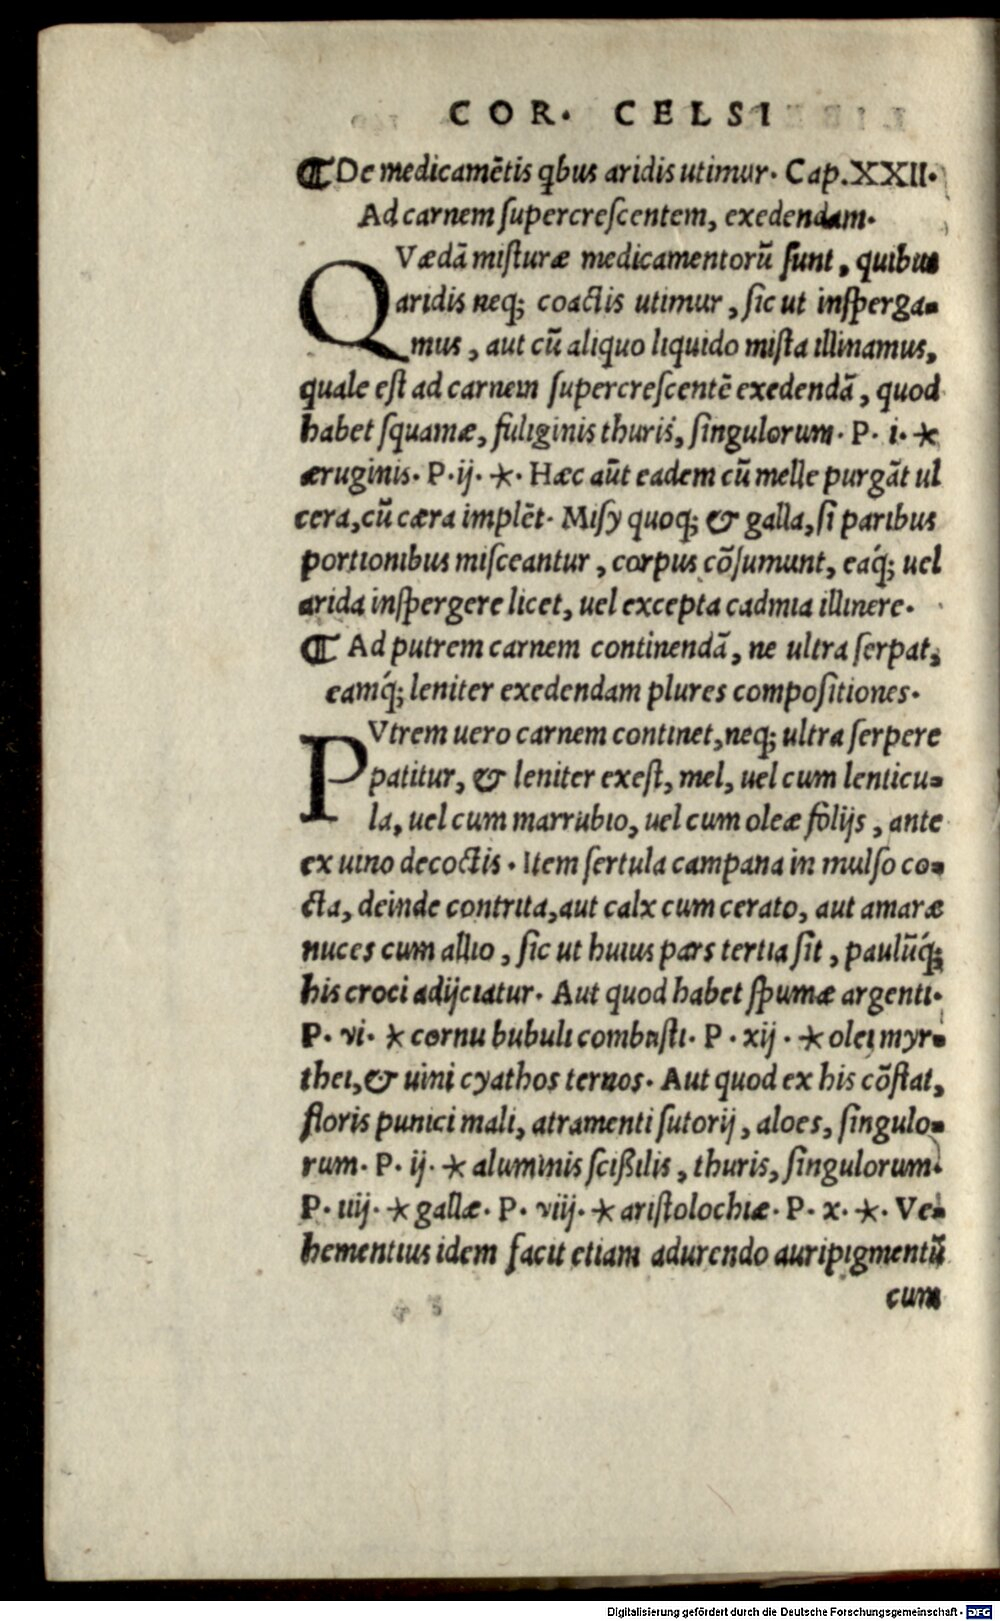 COR. CELSI
¶ De medicamētis qbus aridis utimur. Cap. XXII.
Ad carnem ſupercreſcentem, exedendam.
QVædā miſturæ medicamentorū ſunt, quibus
aridis neq; coactis utimur, ſic ut inſperga-
mus, aut cū aliquo liquido miſta illinamus,
quale eſt ad carnem ſupercreſcentē exedendā, quod
habet ſquamæ, fuliginis thuris, ſingulorum. P. i. *
æruginis. P. ij. *. Hæc aūt eadem cū melle purgāt ul
cera, cū cæra implēt. Miſy quoq; & galla, ſi paribus
portionibus miſceantur, corpus cōſumunt, eaq́; uel
arida inſpergere licet, uel excepta cadmia illinere.
¶ Ad putrem carnem continendā, ne ultra ſerpat,
eamq́; leniter exedendam plures compoſitiones.
PVtrem uero carnem continet, neq; ultra ſerpere
patitur, & leniter exeſt, mel, uel cum lenticu-
la, uel cum marrubio, uel cum oleæ folijs, ante
ex uino decoctis. Item ſertula campana in mulſo co-
cta, deinde contrita, aut calx cum cerato, aut amaræ
nuces cum allio, ſic ut huius pars tertia ſit, paulūq́;
his croci adijciatur. Aut quod habet ſpumæ argenti.
P. vi. * cornu bubuli combuſti. P. xij. * olei myr-
thei, & uini cyathos ternos. Aut quod ex his cōſtat,
floris punici mali, atramenti ſutorij, aloes, ſingulo-
rum. P. ij. * aluminis ſciſſilis, thuris, ſingulorum.
P. iiij. * gallæ. P. viij. * ariſtolochiæ. P. x. *. Ve-
hementius idem facit etiam adurendo auripigmentū
cum
Digitalisierung gefördert durch die Deutsche Forschungsgemeinschaft - DFG